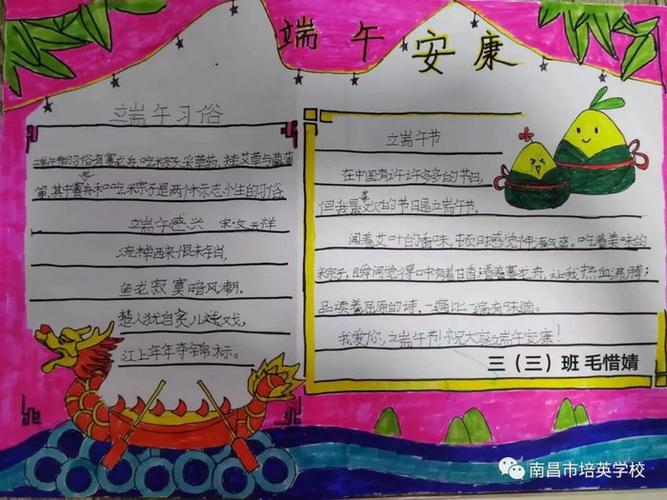 端午安康
端午习俗
端午节的习俗有赛龙舟、吃粽子、采草药、挂艾草与菖蒲
等,其中赛龙舟和吃粽子是两个标志性的习俗。
端午感兴 宋·文天祥
流棹西来恨未销,
鱼龙寂寞暗风潮。
楚人犹自贪儿戏,
江上年年夺锦标。
端午节
在中国有许许多多的节日,
但我最喜欢的节日是端午节。
闻着艾叶的香味,顿时感觉神清气爽。吃着美味的
粽子,瞬间觉得口中有着甘香;看着赛龙舟,让我热血沸腾;
品读着屈原的诗,一遍比一遍有味道。
我爱你,端午节!祝大家端午安康!
三(三)班 毛惜婧
南昌市培英学校